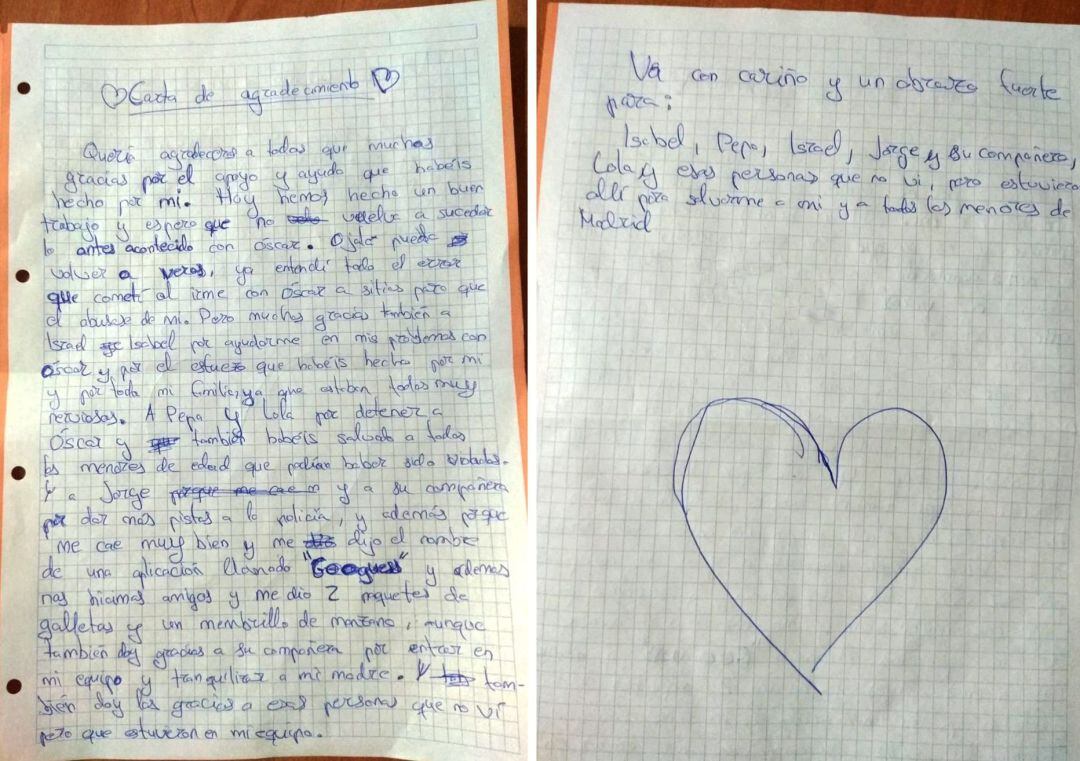 Carta de agradecimiento
Quería agradeceros a todas que muchas
gracias por el apoyo y ayuda que habéis
hecho por mi. Hoy hemos hecho un buen
trabajo y espero que no vuelve a suceder
lo antes acontecido con oscar. Ojalá pueda
volver a veros, ya entendí todo el error
que cometí al irme con Óscar a sitios para que
el abusase de mi. Pero muchas gracias también a
Israel Isabel por ayudarme en mis problemas con
óscar y por el esfuezo que habéis hecho por mi
y por toda mi familia, ya que estaban todos muy
nerviosos. A Pepa y Lola por detener a
Óscar y también habéis salvado a todos
los menores de edad que podían haber sido violados.
Y a Jorge porque me cae n y a su compañera
por dar más pistas a la policía, y además porque
me cae muy bien y me dijo el nombre
de una aplicación llamado "Geoguess" y además
nos hicimos amigos y me dio 2 paquetes de
galletas y un membrillo de manzana, aunque
también doy gracias a su compañera por entrar en
mi equipo y tranquilizar a mi madre. Y tam-
bién doy las gracias a esas personas que no vi
pero que estuvieron en mi equipo.
Va con cariño y un abrazo fuerte
para:
Isabel, Pepa, Israel, Jorge y su compañera,
Lola y esas personas que no vi, pero estuvieron
allí para salvarme a mi y a todos los menores de
Madrid